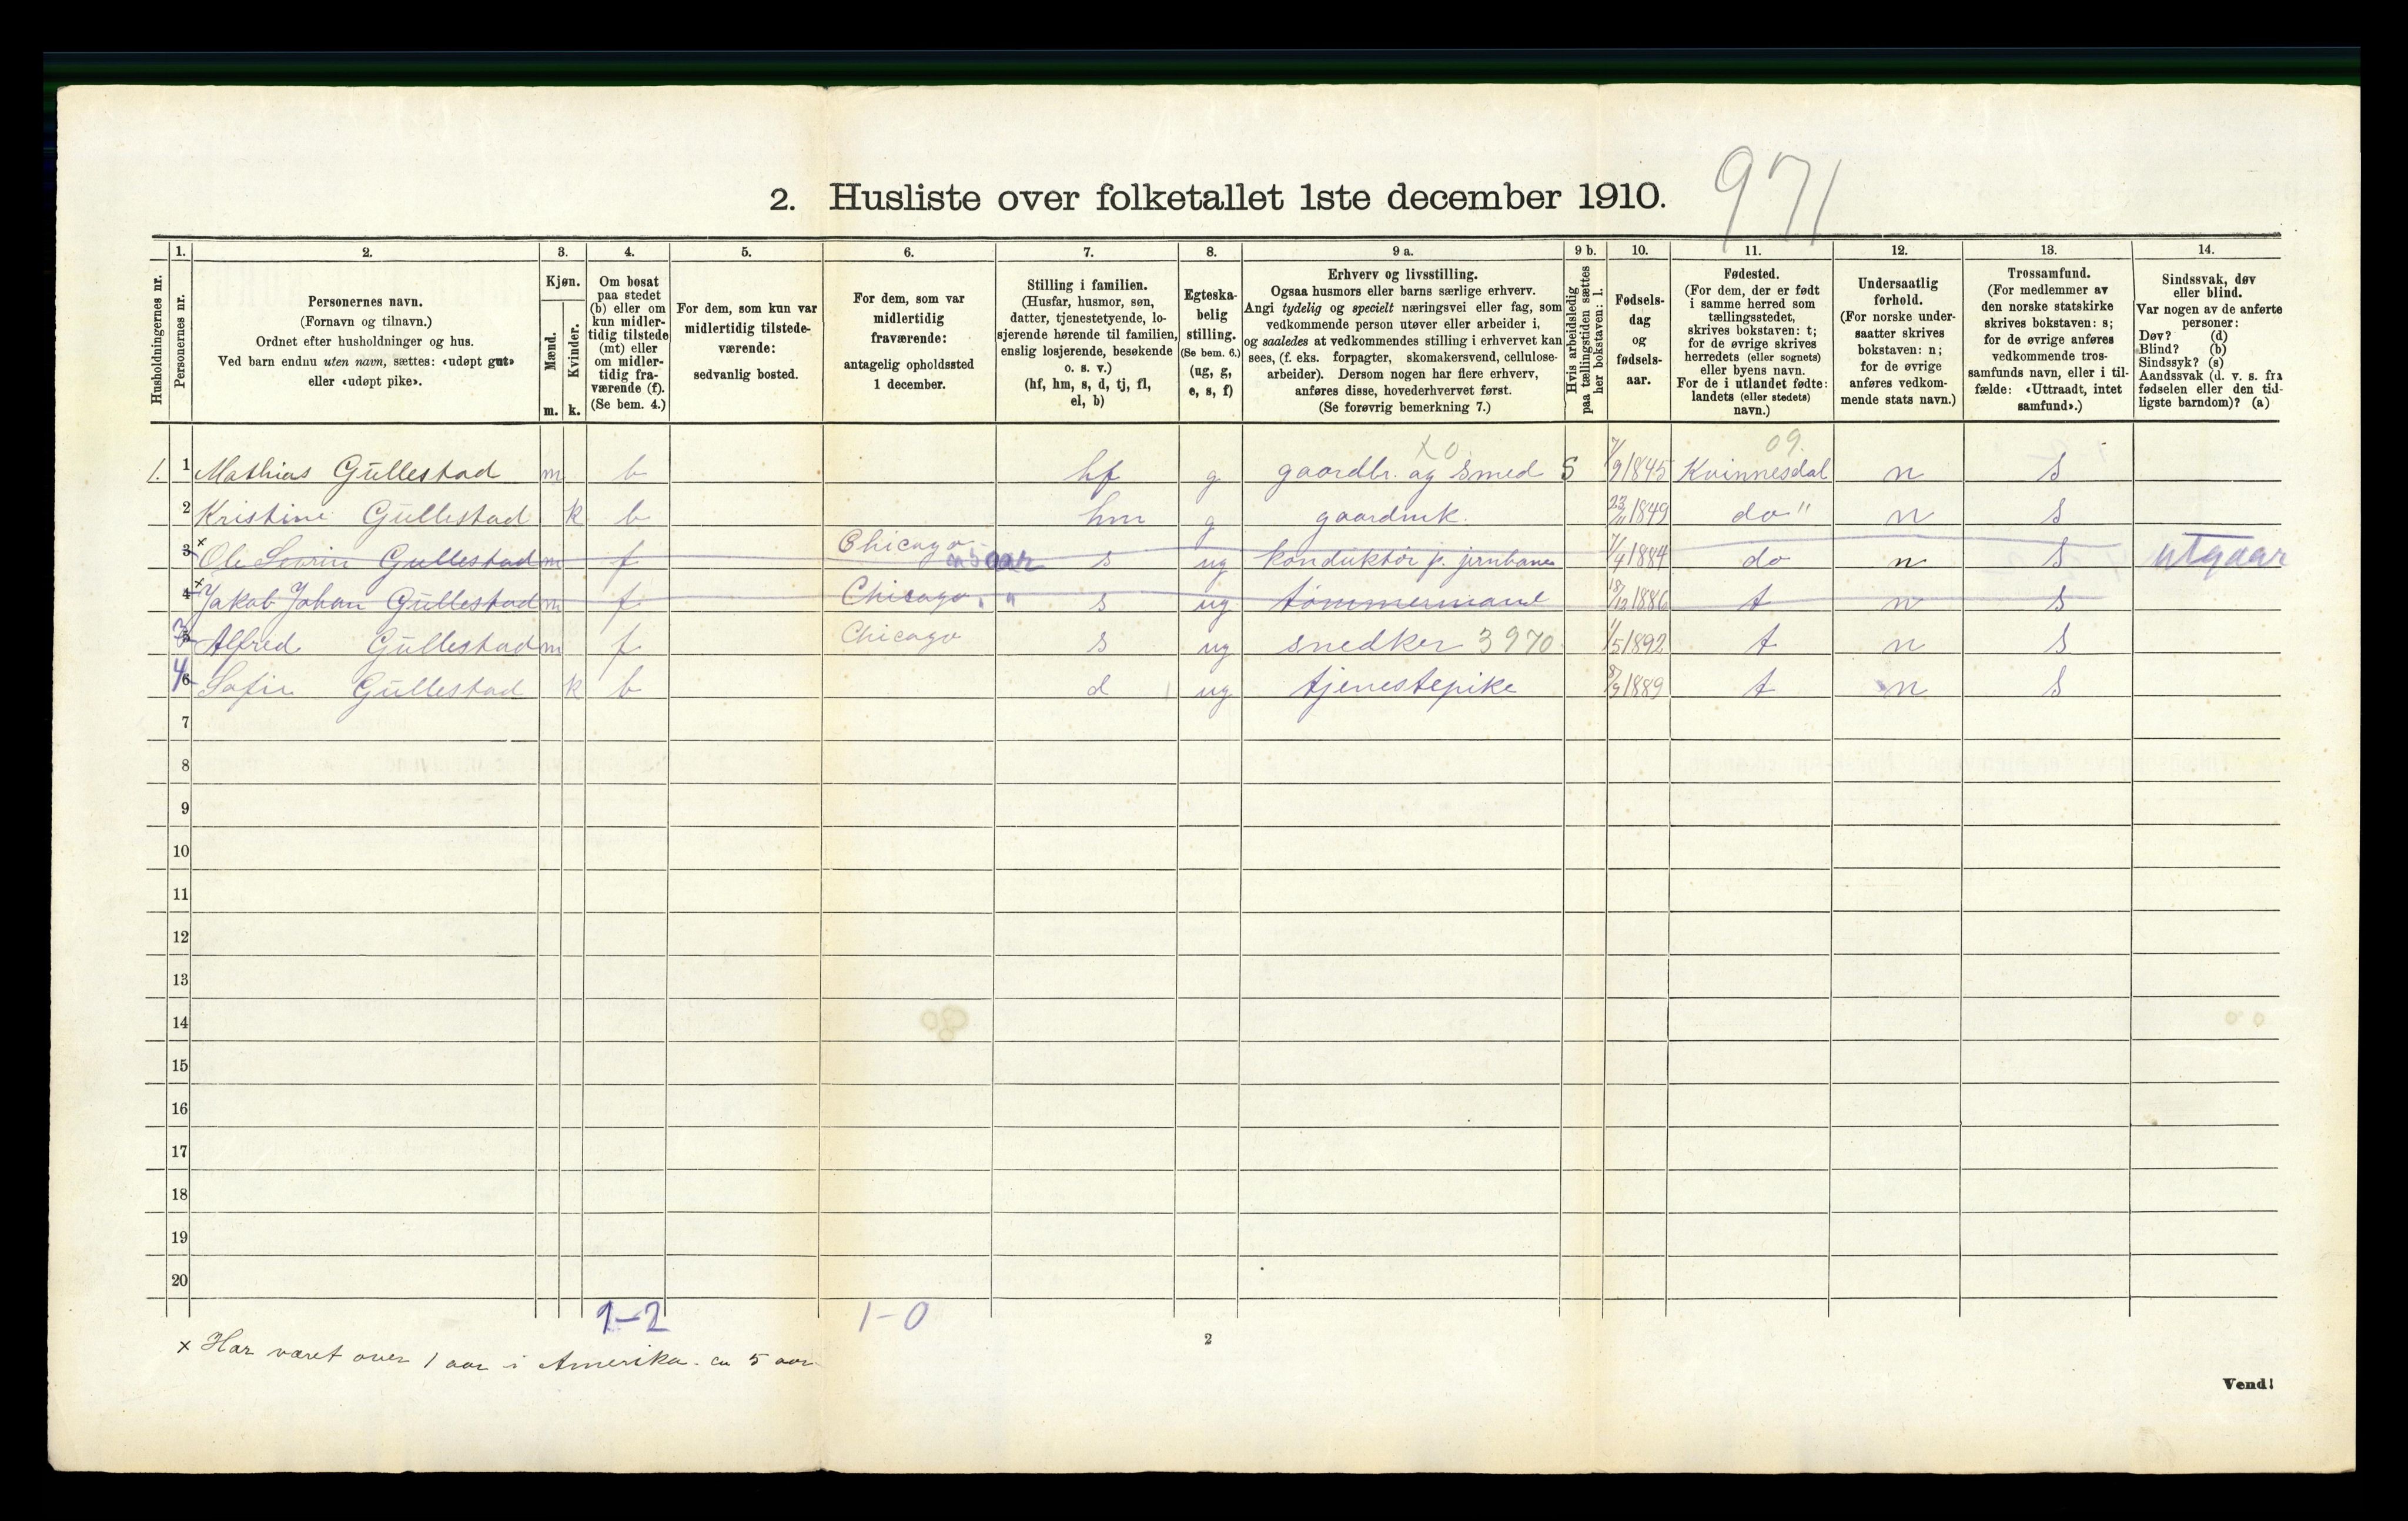 971
2. Husliste over folketallet 1ste december 1910.
Husholdningernes nr.
1. Personernes nr.
2. Personernes navn.
(Fornavn og tilnavn.)
Ordnet efter husholdninger og hus.
Ved barn endnu uten navn, sættes: «udøpt gut»
eller «udøpt pike».
3. Kjøn.
Mænd. m.
Kvinder. k.
4. Om bosat
paa stedet
(b) eller om
kun midler-
tidig tilstede
(mt) eller
om midler-
tidig fra-
værende (f).
(Se bem. 4.)
5. For dem, som kun var
midlertidig tilstede-
værende:
sedvanlig bosted.
6. For dem, som var
midlertidig
fraværende:
antagelig opholdssted
1 december.
7. Stilling i familien.
(Husfar, husmor, søn,
datter, tjenestetyende, lo-
sjerende hørende til familien,
enslig losjerende, besøkende
o. s. v.)
(hf, hm, s, d, tj, fl,
el, b)
8. Egteska-
belig
stilling.
(Se bem. 6.)
(ug, g,
e, s, f)
9 a. Erhverv og livsstilling.
Ogsaa husmors eller barns særlige erhverv.
Angi tydelig og specielt næringsvei eller fag, som
vedkommende person utøver eller arbeider i,
og saaledes at vedkommendes stilling i erhvervet kan
sees, (f. eks. forpagter, skomakersvend, cellulose-
arbeider). Dersom nogen har flere erhverv,
anføres disse, hovederhvervet først.
(Se forøvrig bemerkning 7.)
9 b. Hvis arbeidsledig
paa tællingstiden sættes
her bokstaven: l.
10. Fødsels-
dag
og
fødsels-
aar.
11. Fødested.
(For dem, der er født
i samme herred som
tællingsstedet,
skrives bokstaven: t;
for de øvrige skrives
herredets (eller sognets)
eller byens navn.
For de i utlandet fødte:
landets (eller stedets)
navn.)
12. Undersaatlig
forhold.
(For norske under-
saatter skrives
bokstaven: n;
for de øvrige
anføres vedkom-
mende stats navn.)
13. Trossamfund.
(For medlemmer av
den norske statskirke
skrives bokstaven: s;
for de øvrige anføres
vedkommende tros-
samfunds navn, eller i til-
fælde: «Uttraadt, intet
samfund».)
14. Sindssvak, døv
eller blind.
Var nogen av de anførte
personer:
Døv? (d)
Blind? (b)
Sindssyk? (s)
Aandssvak (d. v. s. fra
fødselen eller den tid-
ligste barndom)? (a)
x 0 09.
1. 1 Mathias Gullestad m b hf g gaardbr. og Smed S 7/9 1845 Kvinnesdal n s
2 Kristine Gullestad k b hm g gaardmk. 23/11 1849 do" n s
3 x Ole Severin Gullestad m f Chicago ca 5 aar s ug konduktør p. jernbane 7/4 1884 do n s utgaar
4 x Jakob Johan Gullestad m f Chicago. " s ug tømmermand 18/12 1886 t n s
5 3 Alfred Gullestad m f Chicago s ug snedker 3970 1/5 1892 t n s
6 4 Sofie Gullestad k b d ug tjenestepike 1889 t n s
7
8
9
10
11
12
13
14
15
16
17
18
19
20
1-2 1-0
x Har været over 1 aar i Amerika. ca 5 aar
2
Vend!